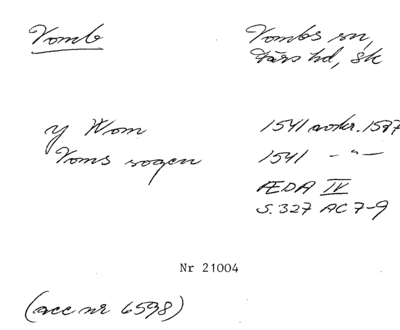 Vomb
Vombs sn,
Färs hd, Sk
y Wom 1541 avskr. 1597
Voms sogen 1541 -"-
ÆDA IV
S. 327 AC 7-9
Nr 21004
(acc nr 6598)